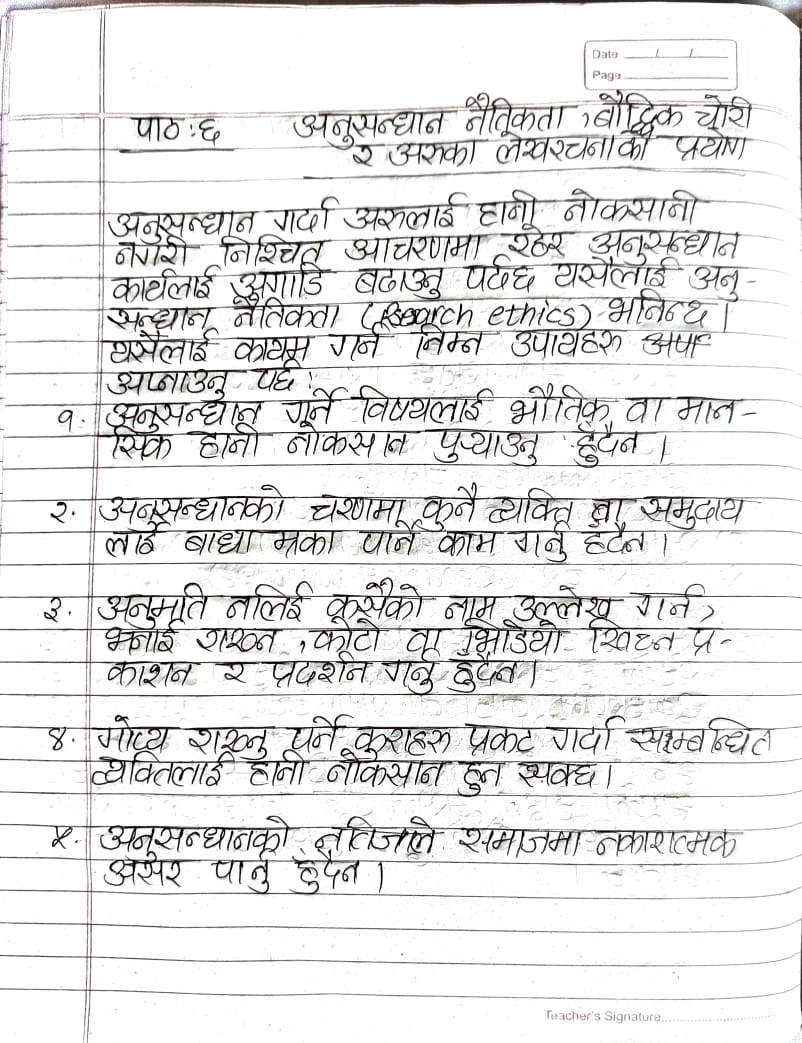 Date / /
Page
पाठ:६ अनुसन्धान नैतिकता, बौद्धिक चोरी
र अरुका लेखरचनाको प्रयोग
अनुसन्धान गर्दा अरुलाई हानी नोकसानी
नगरी निश्चित आचरणमा रहेर अनुसन्धान
कार्यलाई अगाडि बढाउनु पर्दछ यसैलाई अनु-
सन्धान नैतिकता (Research ethics) भनिन्छ।
यसैलाई कायम गर्न निम्न उपायहरु
अप्नाउनु पर्छ:
१. अनुसन्धान गर्ने विषयलाई भौतिक वा मान-
सिक हानी नोकसान पुर्‍याउनु हुँदैन।
२. अनुसन्धानको चरणमा कुनै व्यक्ति वा समुदाय
लाई बाधा मर्का पार्ने काम गर्नु हुदैन।
३. अनुमति नलिई कसैको नाम उल्लेख गर्न,
भनाई राख्न, फोटो वा भिडियो खिच्न प्र-
काशन र प्रदर्शन गर्नु हुँदैन।
४. गोप्य राख्नु पर्ने कुराहरु प्रकट गर्दा सम्बन्धित
व्यक्तिलाई हानी नोकसान हुन सक्छ।
५. अनुसन्धानको नतिजाले समाजमा नकारात्मक
असर पार्नु हुँदैन।
Teacher's Signature